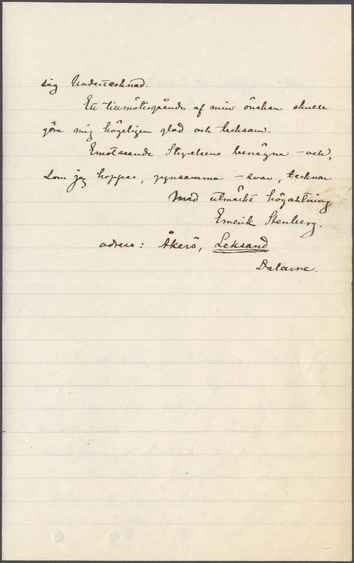 sig Undertecknad.
Ett tillmötesgående af min önskan skulle
göra mig högeligen glad och tacksam.
Emotseende Styrelsens benägna – och,
som jag hoppas, gynsamma – svar, tecknar
Med utmärkt högaktning
Emerik Stenberg.
adress: Åkerö, Leksand
Dalarne.